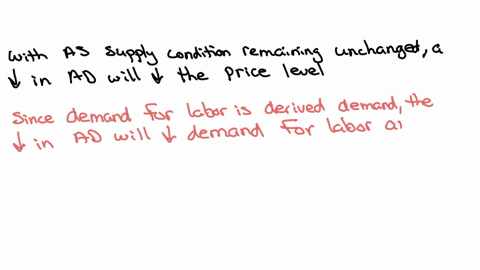 with AS supply condition remaining unchanged, a
↓ in AD will ↓ the price level
Since demand for labor is derived demand, the
↓ in AD will ↓ demand for labor